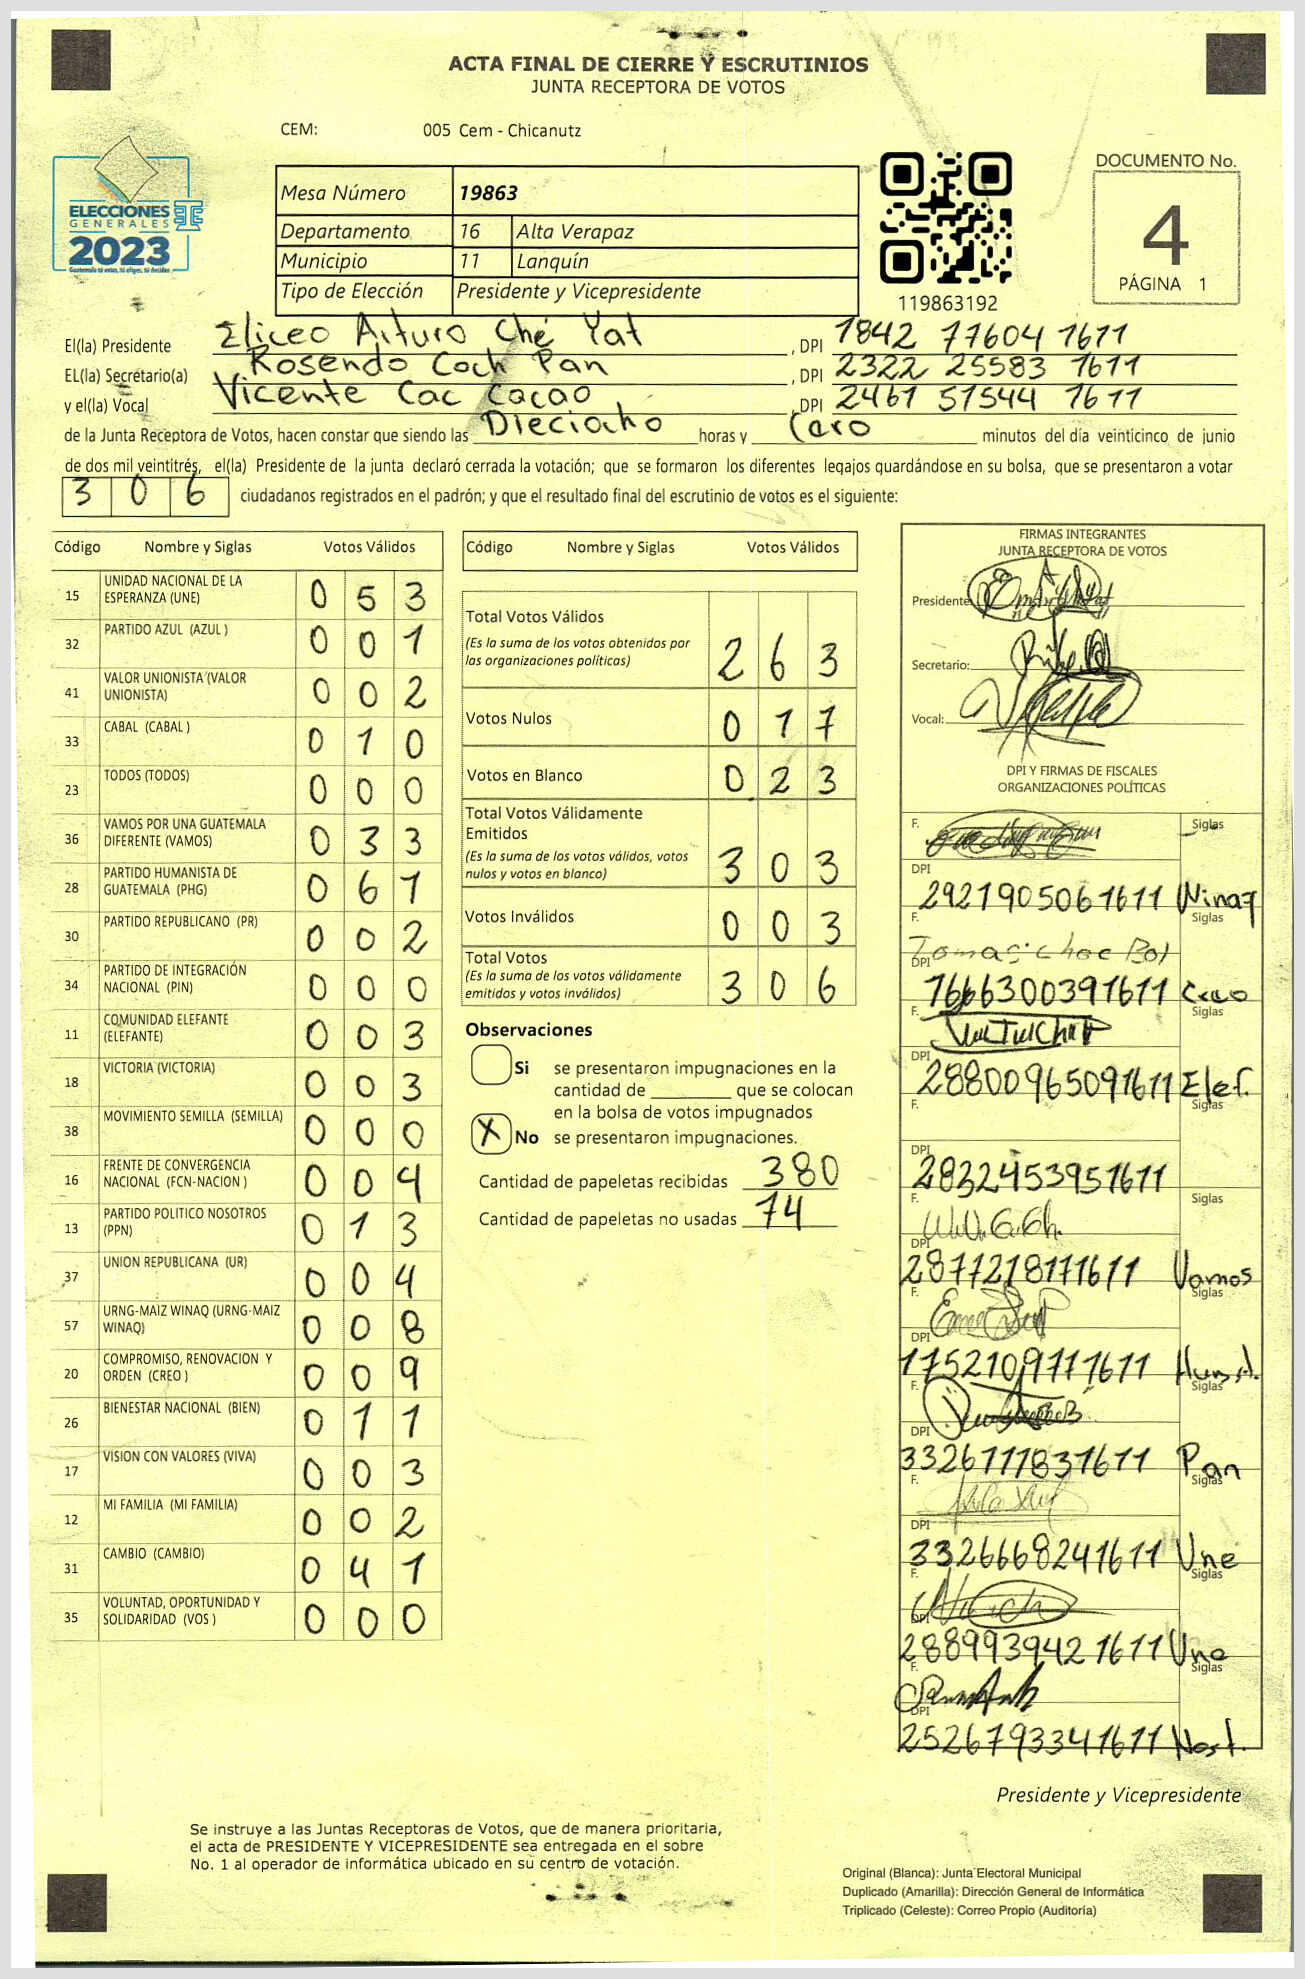 ACTA FINAL DE CIERRE Y ESCRUTINIOS
JUNTA RECEPTORA DE VOTOS
CEM: 005 Cem - Chicanutz
ELECCIONES
GENERALES
2023
Guatemala tú votas, tú eliges, tú decides
Mesa Número 19863
Departamento 16 Alta Verapaz
Municipio 11 Lanquín
Tipo de Elección Presidente y Vicepresidente
119863192
DOCUMENTO No.
4
PÁGINA 1
El(la) Presidente Eliceo Arturo Ché Yat , DPI 1842 77604 1611
EL(la) Secretario(a) Rosendo Coch Pan , DPI 2322 25583 1611
y el(la) Vocal Vicente Cac Cacao , DPI 2461 51544 1611
de la Junta Receptora de Votos, hacen constar que siendo las Dieciocho horas y Cero minutos del día veinticinco de junio
de dos mil veintitrés, el(la) Presidente de la junta declaró cerrada la votación; que se formaron los diferentes legajos guardándose en su bolsa, que se presentaron a votar
306 ciudadanos registrados en el padrón; y que el resultado final del escrutinio de votos es el siguiente:
Código Nombre y Siglas Votos Válidos
15 UNIDAD NACIONAL DE LA ESPERANZA (UNE) 053
32 PARTIDO AZUL (AZUL ) 001
41 VALOR UNIONISTA (VALOR UNIONISTA) 002
33 CABAL (CABAL ) 010
23 TODOS (TODOS) 000
36 VAMOS POR UNA GUATEMALA DIFERENTE (VAMOS) 033
28 PARTIDO HUMANISTA DE GUATEMALA (PHG) 061
30 PARTIDO REPUBLICANO (PR) 002
34 PARTIDO DE INTEGRACIÓN NACIONAL (PIN) 000
11 COMUNIDAD ELEFANTE (ELEFANTE) 003
18 VICTORIA (VICTORIA) 003
38 MOVIMIENTO SEMILLA (SEMILLA) 000
16 FRENTE DE CONVERGENCIA NACIONAL (FCN-NACION ) 004
13 PARTIDO POLITICO NOSOTROS (PPN) 013
37 UNION REPUBLICANA (UR) 004
57 URNG-MAIZ WINAQ (URNG-MAIZ WINAQ) 008
20 COMPROMISO, RENOVACION Y ORDEN (CREO ) 009
26 BIENESTAR NACIONAL (BIEN) 011
17 VISION CON VALORES (VIVA) 003
12 MI FAMILIA (MI FAMILIA) 002
31 CAMBIO (CAMBIO) 041
35 VOLUNTAD, OPORTUNIDAD Y SOLIDARIDAD (VOS ) 000
Código Nombre y Siglas Votos Válidos
Total Votos Válidos
(Es la suma de los votos obtenidos por las organizaciones políticas) 263
Votos Nulos 017
Votos en Blanco 023
Total Votos Válidamente Emitidos
(Es la suma de los votos válidos, votos nulos y votos en blanco) 303
Votos Inválidos 003
Total Votos
(Es la suma de los votos válidamente emitidos y votos inválidos) 306
Observaciones
Si se presentaron impugnaciones en la
cantidad de ________ que se colocan
en la bolsa de votos impugnados
X No se presentaron impugnaciones.
Cantidad de papeletas recibidas 380
Cantidad de papeletas no usadas 74
FIRMAS INTEGRANTES
JUNTA RECEPTORA DE VOTOS
Presidente:
Secretario:
Vocal:
DPI Y FIRMAS DE FISCALES
ORGANIZACIONES POLÍTICAS
F. Siglas
DPI 2921905061611 Winaq
F. Tomas Choc Bol Siglas
DPI 1666300391611 Creo
F. Siglas
DPI 2880096509 1611 Elef.
F. Siglas
DPI 2832453951611
F. Siglas
DPI 2877218171611 Vamos
F. Siglas
DPI 1752109771611
F. Siglas
DPI 3326111831611 Pan
F. Siglas
DPI 3326668241611 Une
F. Siglas
DPI 2889939421611 Une
F. Siglas
DPI 2526793341611 Nost.
Presidente y Vicepresidente
Se instruye a las Juntas Receptoras de Votos, que de manera prioritaria,
el acta de PRESIDENTE Y VICEPRESIDENTE sea entregada en el sobre
No. 1 al operador de informática ubicado en su centro de votación.
Original (Blanca): Junta Electoral Municipal
Duplicado (Amarilla): Dirección General de Informática
Triplicado (Celeste): Correo Propio (Auditoría)